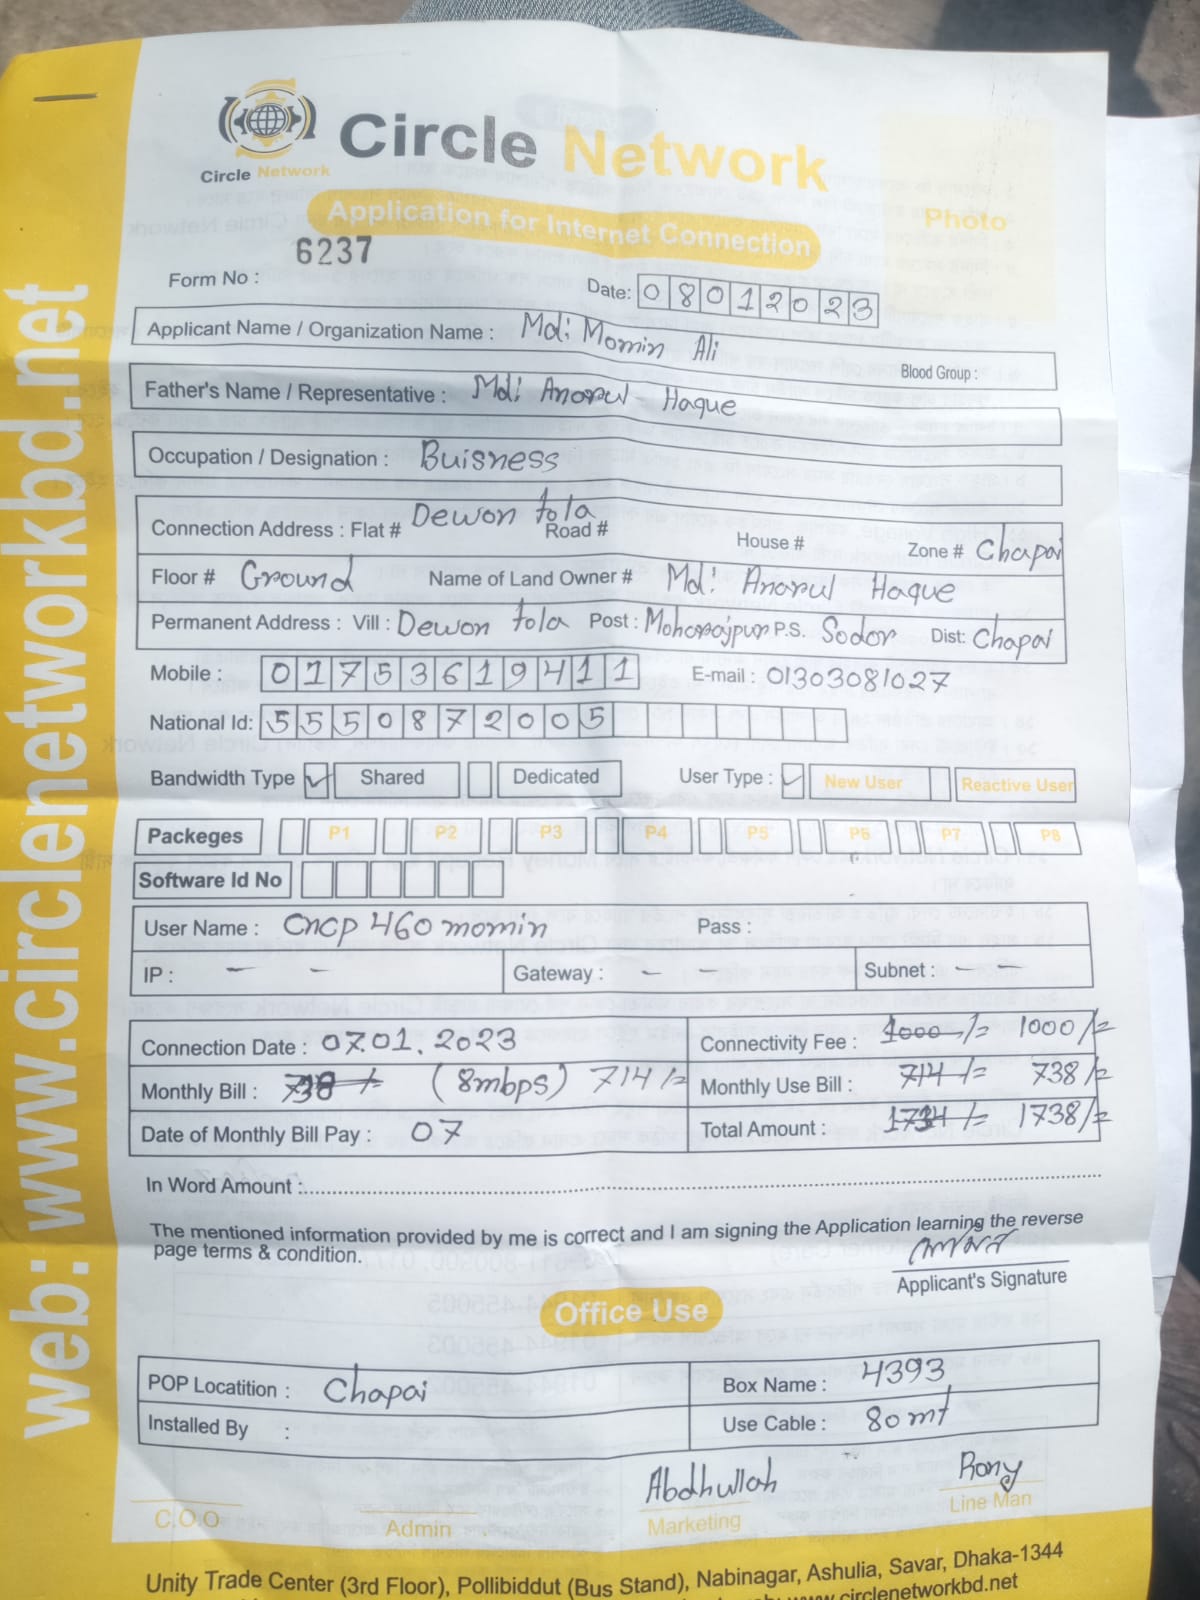 web: www.circlenetworkbd.net
Circle Network
Circle Network
Application for Internet Connection
Photo
6237
Form No :
Date: 08012023
Applicant Name / Organization Name : Md: Momin Ali
Blood Group :
Father's Name / Representative : Md: Anarul Haque
Occupation / Designation : Buisness
Connection Address : Flat # Dewon tola Road # House # Zone # Chapai
Floor # Ground Name of Land Owner # Md: Anarul Haque
Permanent Address : Vill : Dewon tola Post : Moharajpur P.S. Sodor Dist: Chapai
Mobile : 01753619411 E-mail : 01303081027
National Id: 5550872005
Bandwidth Type ✓ Shared Dedicated User Type : ✓ New User Reactive User
Packeges P1 P2 P3 P4 P5 P6 P7 P8
Software Id No
User Name : CNCP 460 momin Pass :
IP : - - Gateway : - - Subnet : - -
Connection Date : 07.01.2023 Connectivity Fee : 1000/= 1000/=
Monthly Bill : 738/= (8mbps) 714/= Monthly Use Bill : 714/= 738/=
Date of Monthly Bill Pay : 07 Total Amount : 1714/= 1738/=
In Word Amount :
The mentioned information provided by me is correct and I am signing the Application learning the reverse
page terms & condition.
Applicant's Signature
Office Use
POP Locatition : Chapai Box Name : 4393
Installed By : Use Cable : 80 mt
Abdhullah Rony
C.O.O Admin Marketing Line Man
Unity Trade Center (3rd Floor), Pollibiddut (Bus Stand), Nabinagar, Ashulia, Savar, Dhaka-1344
www.circlenetworkbd.net